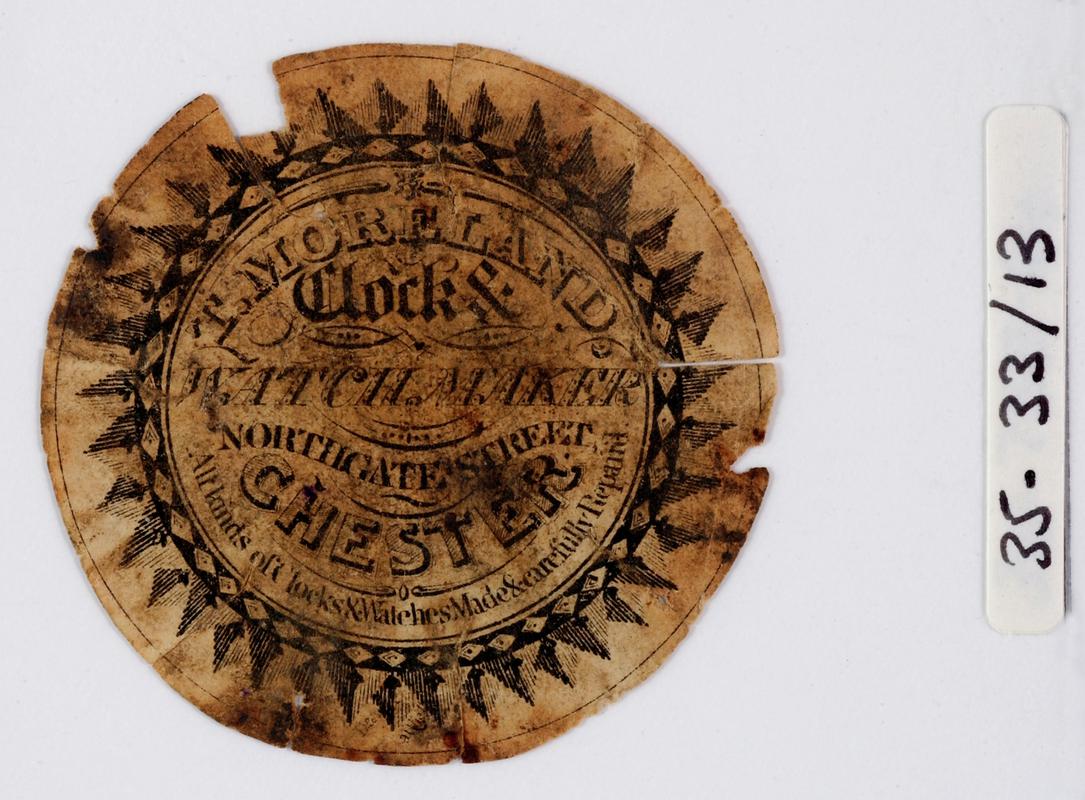 T. MORELAND
Clock &
WATCH MAKER
NORTHGATE STREET,
CHESTER.
All kinds of Clocks & Watches Made & carefully Repair'd
35-33/13